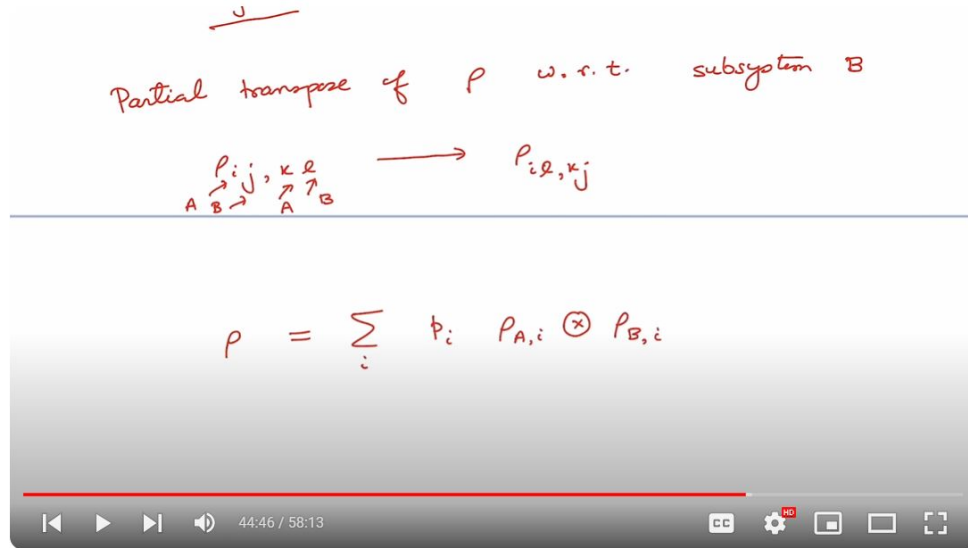 Partial transpose of ρ w.r.t. subsystem B
ρij,kl ⟶ ρil,kj
A B A B
ρ = Σi pi ρA,i ⊗ ρB,i
44:46 / 58:13 CC HD